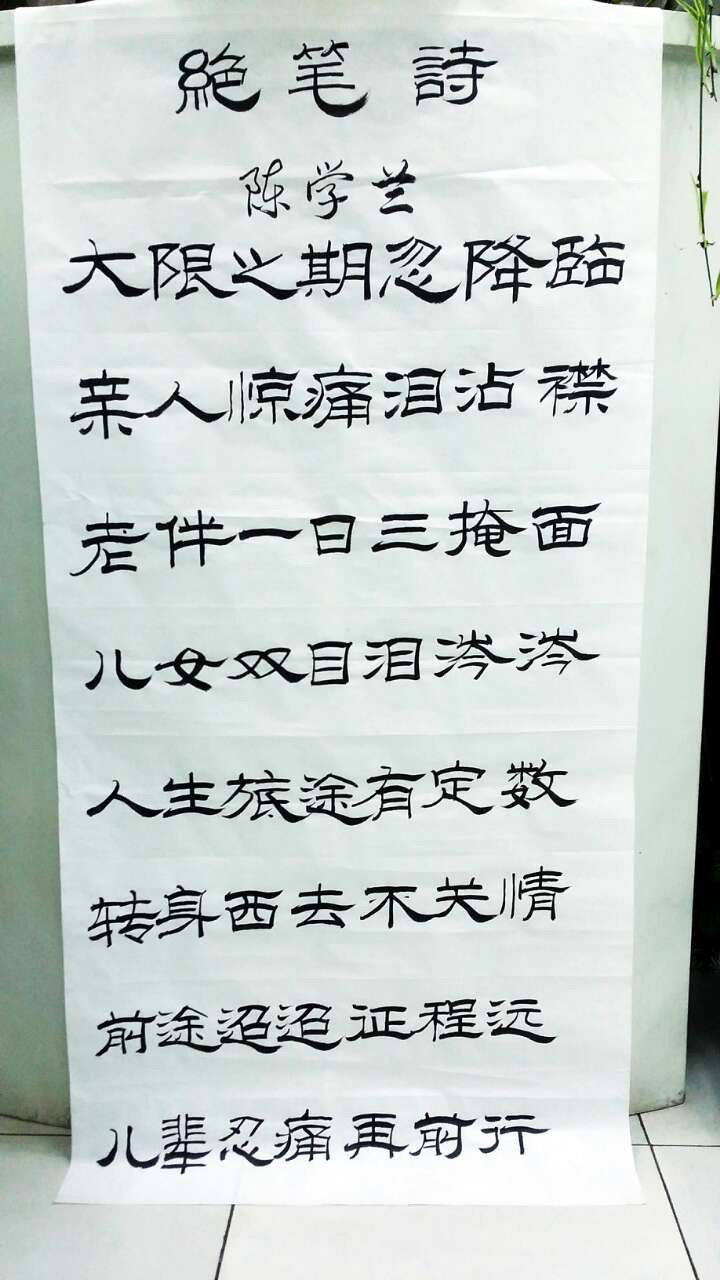 絶笔詩
陈学兰
大限之期忽降临
亲人惊痛泪沾襟
老伴一日三掩面
儿女双目泪涔涔
人生旅途有定数
转身西去不关情
前途迢迢征程远
儿辈忍痛再前行